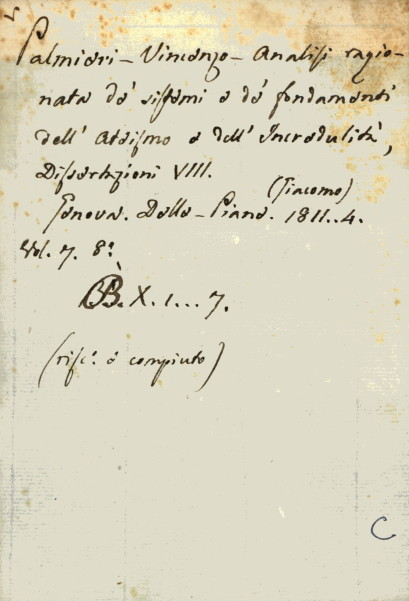 Palmieri - Vincenzo - Analisi ragio-
nata de' sistemi e de' fondamenti
dell' Ateismo e dell' Incredulità,
Dissertazioni VIII.
(Giacomo)
Genova. Dello-Piano. 1811..4.
Vol. 7. 8.º
B. X. 1...7.
(risc.º è compiuto)
C